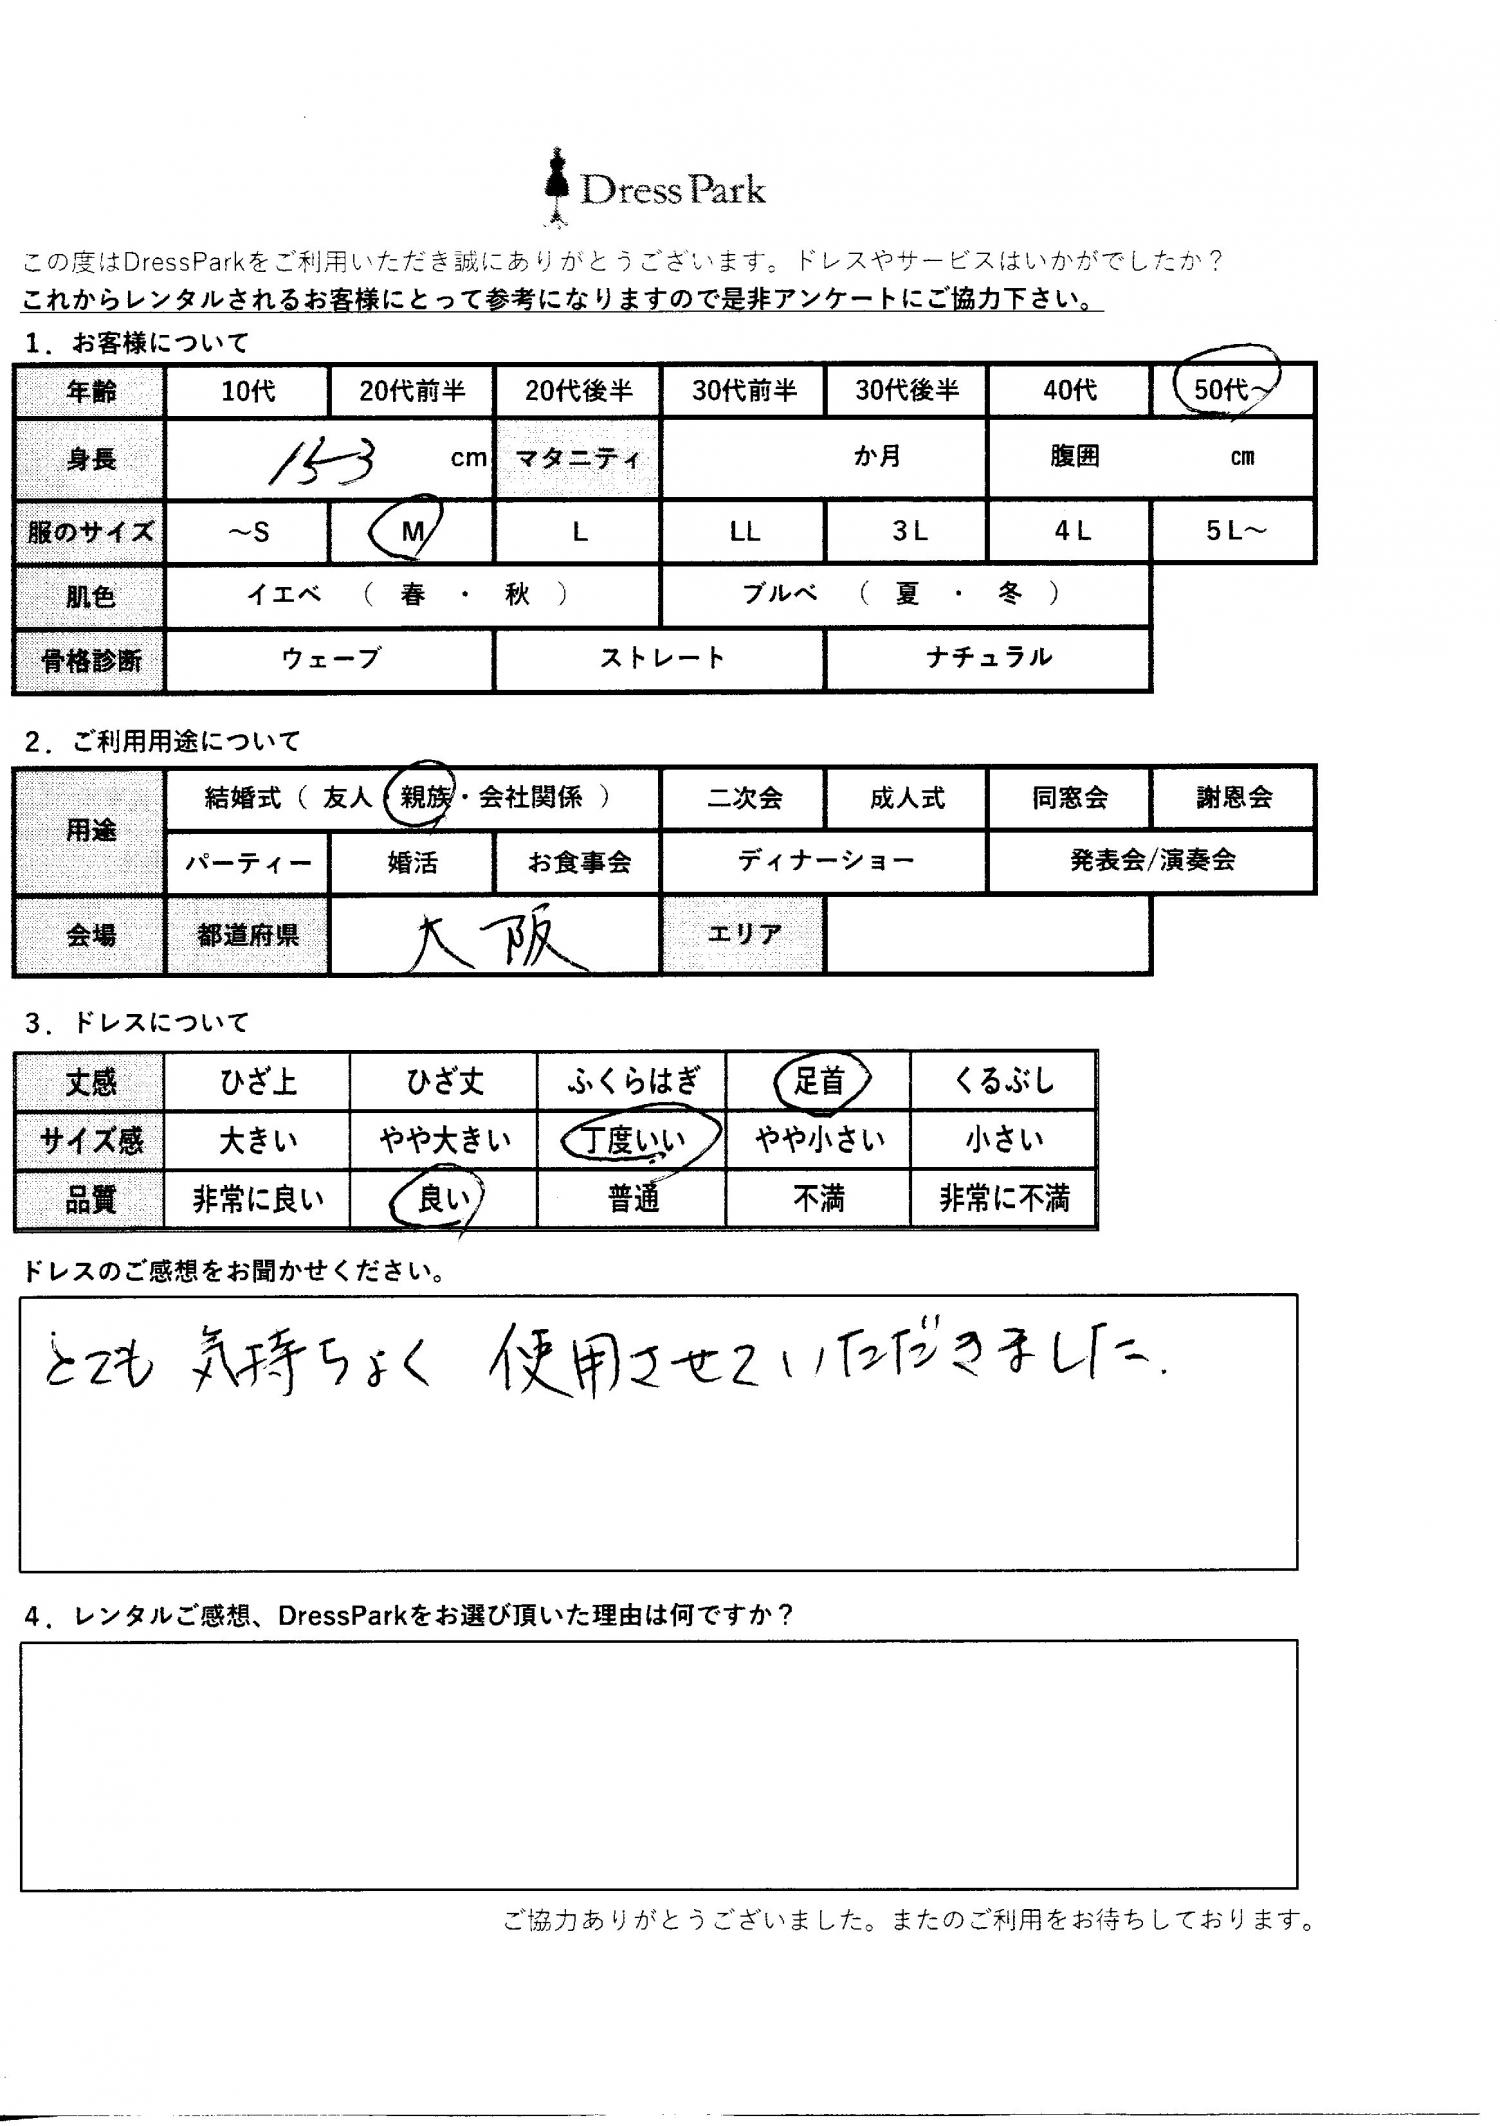 Dress Park
この度はDressParkをご利用いただき誠にありがとうございます。ドレスやサービスはいかがでしたか？
これからレンタルされるお客様にとって参考になりますので是非アンケートにご協力下さい。
1．お客様について
年齢 10代 20代前半 20代後半 30代前半 30代後半 40代 50代～
身長 153 cm マタニティ か月 腹囲 ㎝
服のサイズ ～S M L LL 3L 4L 5L～
肌色 イエベ （ 春 ・ 秋 ） ブルベ （ 夏 ・ 冬 ）
骨格診断 ウェーブ ストレート ナチュラル
2．ご利用用途について
用途 結婚式（ 友人・親族・会社関係 ） 二次会 成人式 同窓会 謝恩会
パーティー 婚活 お食事会 ディナーショー 発表会/演奏会
会場 都道府県 大阪 エリア
3．ドレスについて
丈感 ひざ上 ひざ丈 ふくらはぎ 足首 くるぶし
サイズ感 大きい やや大きい 丁度いい やや小さい 小さい
品質 非常に良い 良い 普通 不満 非常に不満
ドレスのご感想をお聞かせください。
とても 気持ちよく 使用させていただきました.
4．レンタルご感想、DressParkをお選び頂いた理由は何ですか？
ご協力ありがとうございました。またのご利用をお待ちしております。